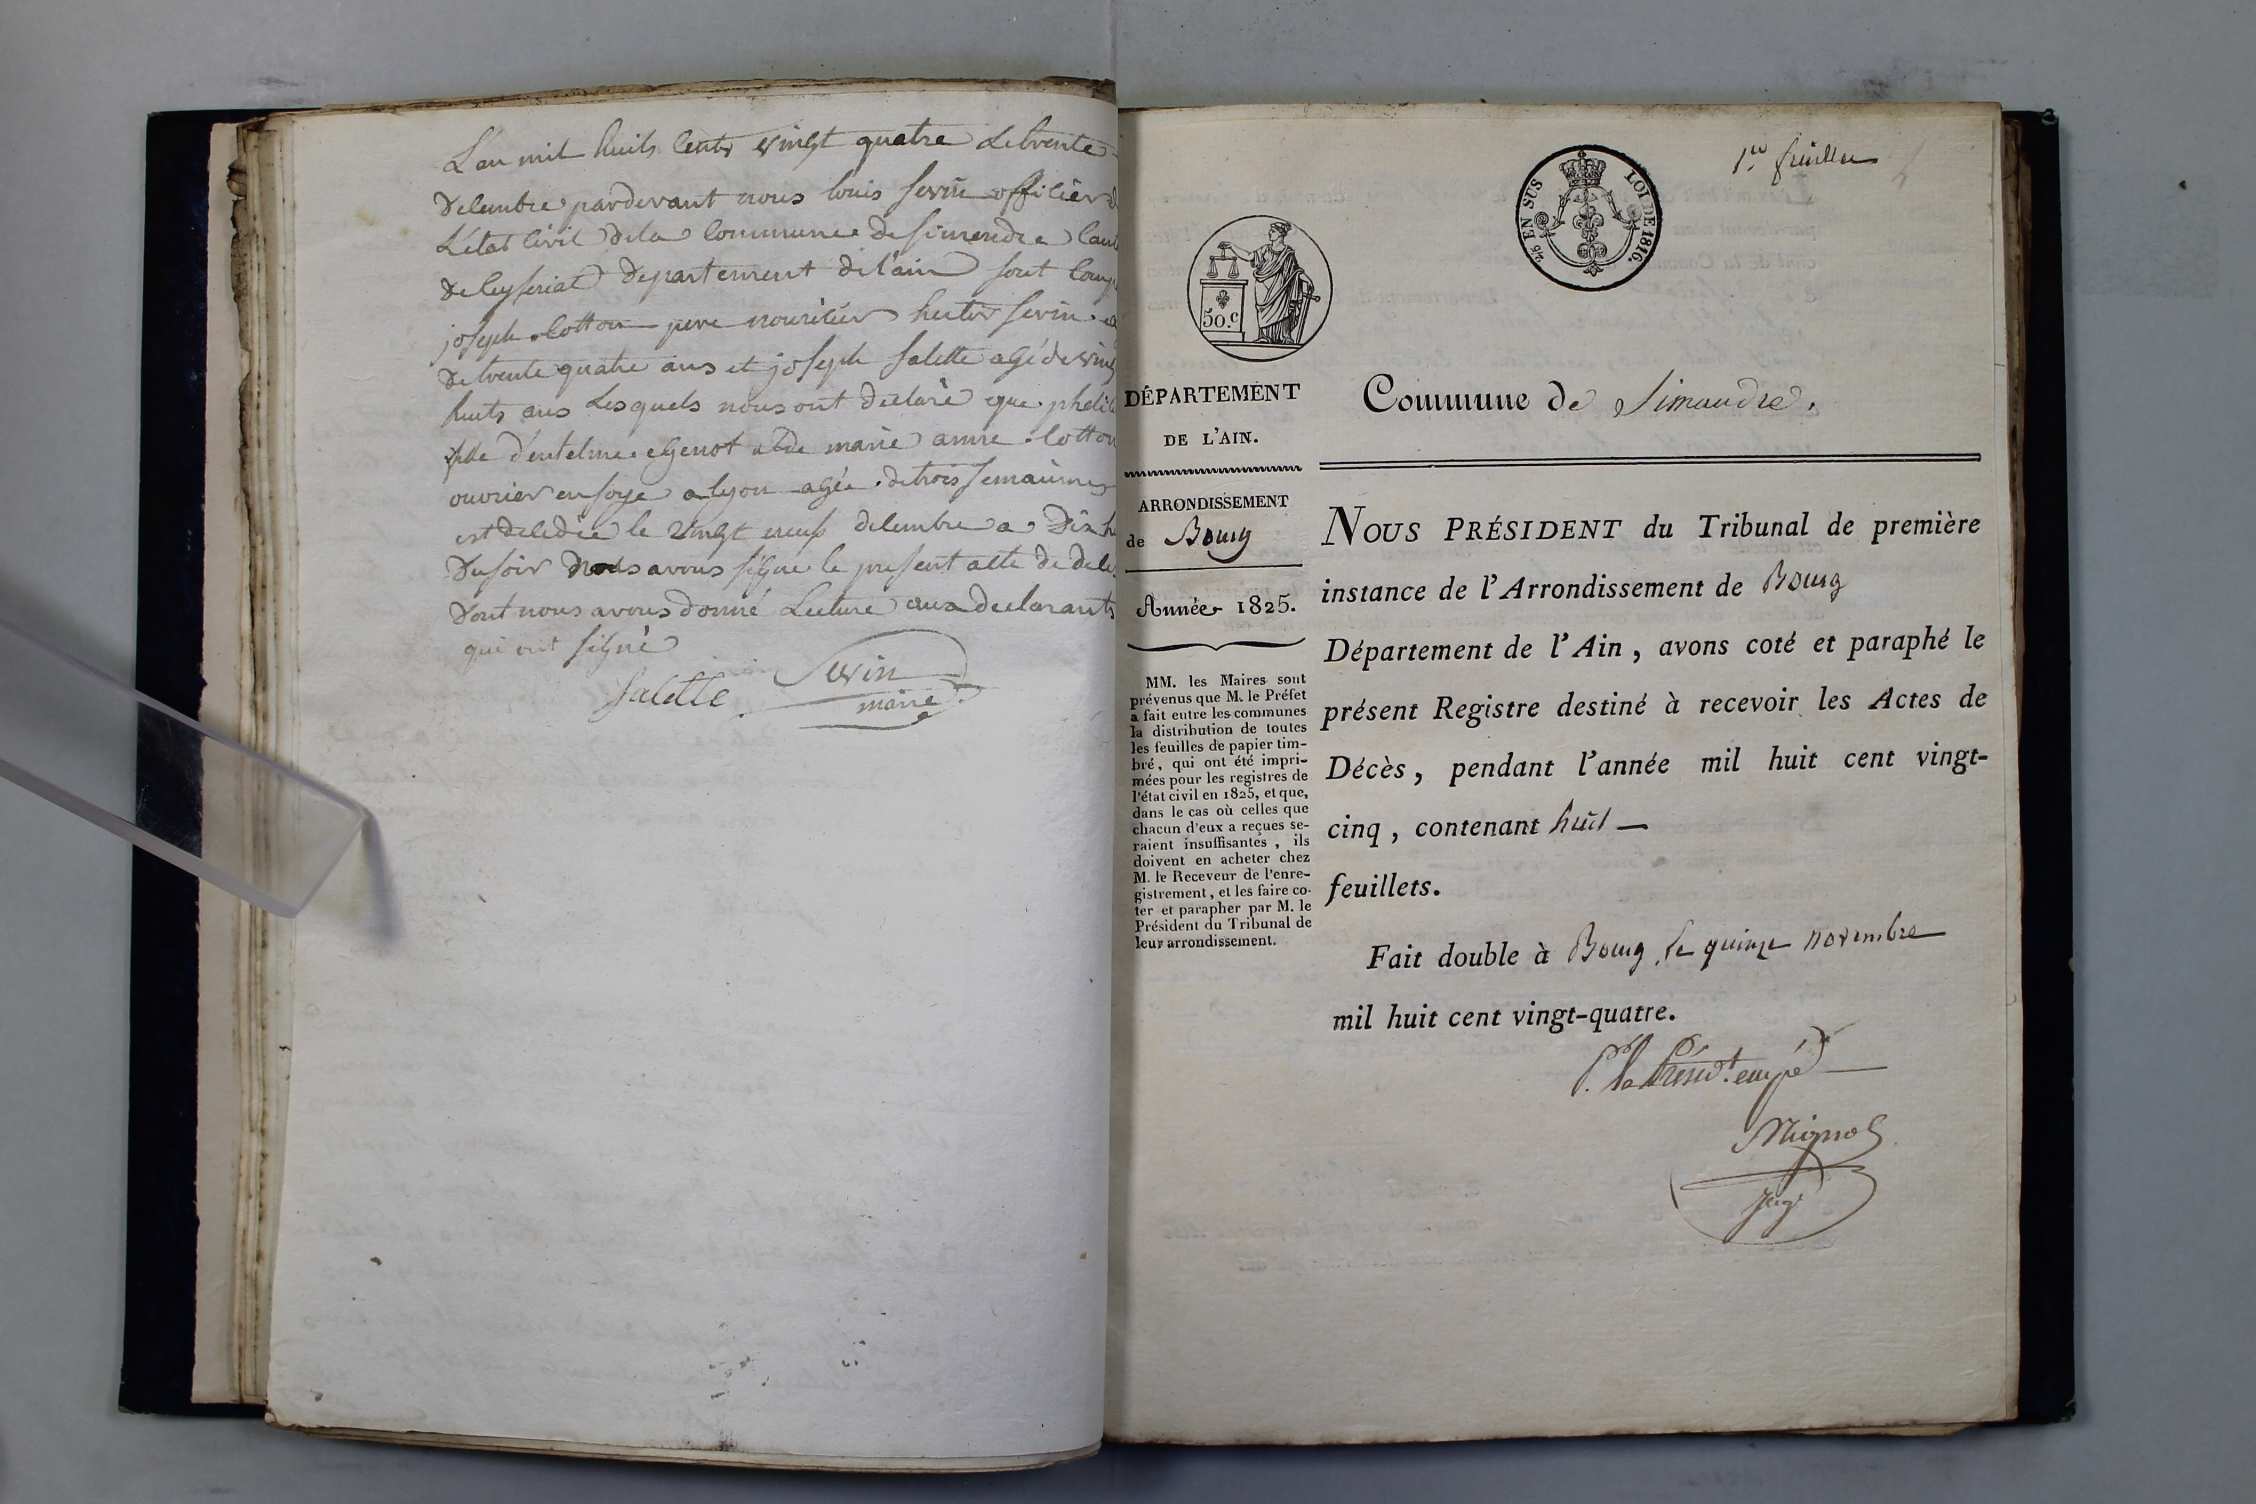 L'an mil huits cents vingt quatre Letrente
Decembre pardevant nous louis sevin officier d
L'état Civil de la Commune de simendre Cant
De Ceyseriat Departement de l'ain sont Comp
joseph Cotton pere nouricier hector sevin
De trente quatre ans et joseph salette agé de ving
huits ans Lesquels nous ont declaré que
fille d'entelme Genot et de marie anne Cotton
ouvrier en soye a lyon agée de trois semainnes
est decedée le vingt neuf decembre a Dix h
Du soir Nous avons signe le present acte de deces
Dont nous avons donné Lecture aux declarants
qui ont signé
Salette Sevin
maire
1er feuillet
¼ EN SUS LOI DE 1816.
50.c
DÉPARTEMENT
DE L'AIN.
ARRONDISSEMENT
de Bourg
Année 1825.
MM. les Maires sont
prévenus que M. le Préfet
a fait entre les communes
la distribution de toutes
les feuilles de papier tim-
bré, qui ont été impri-
mées pour les registres de
l'état civil en 1825, et que,
dans le cas où celles que
chacun d'eux a reçues se-
raient insuffisantes, ils
doivent en acheter chez
M. le Receveur de l'enre-
gistrement, et les faire co-
ter et parapher par M. le
Président du Tribunal de
leur arrondissement.
Commune de Simandre.
NOUS PRÉSIDENT du Tribunal de première
instance de l'Arrondissement de Bourg
Département de l'Ain, avons coté et paraphé le
présent Registre destiné à recevoir les Actes de
Décès, pendant l'année mil huit cent vingt-
cinq, contenant huit
feuillets.
Fait double à Bourg, le quinze novembre
mil huit cent vingt-quatre.
P. le Présidt. empé
Mignot
Juge